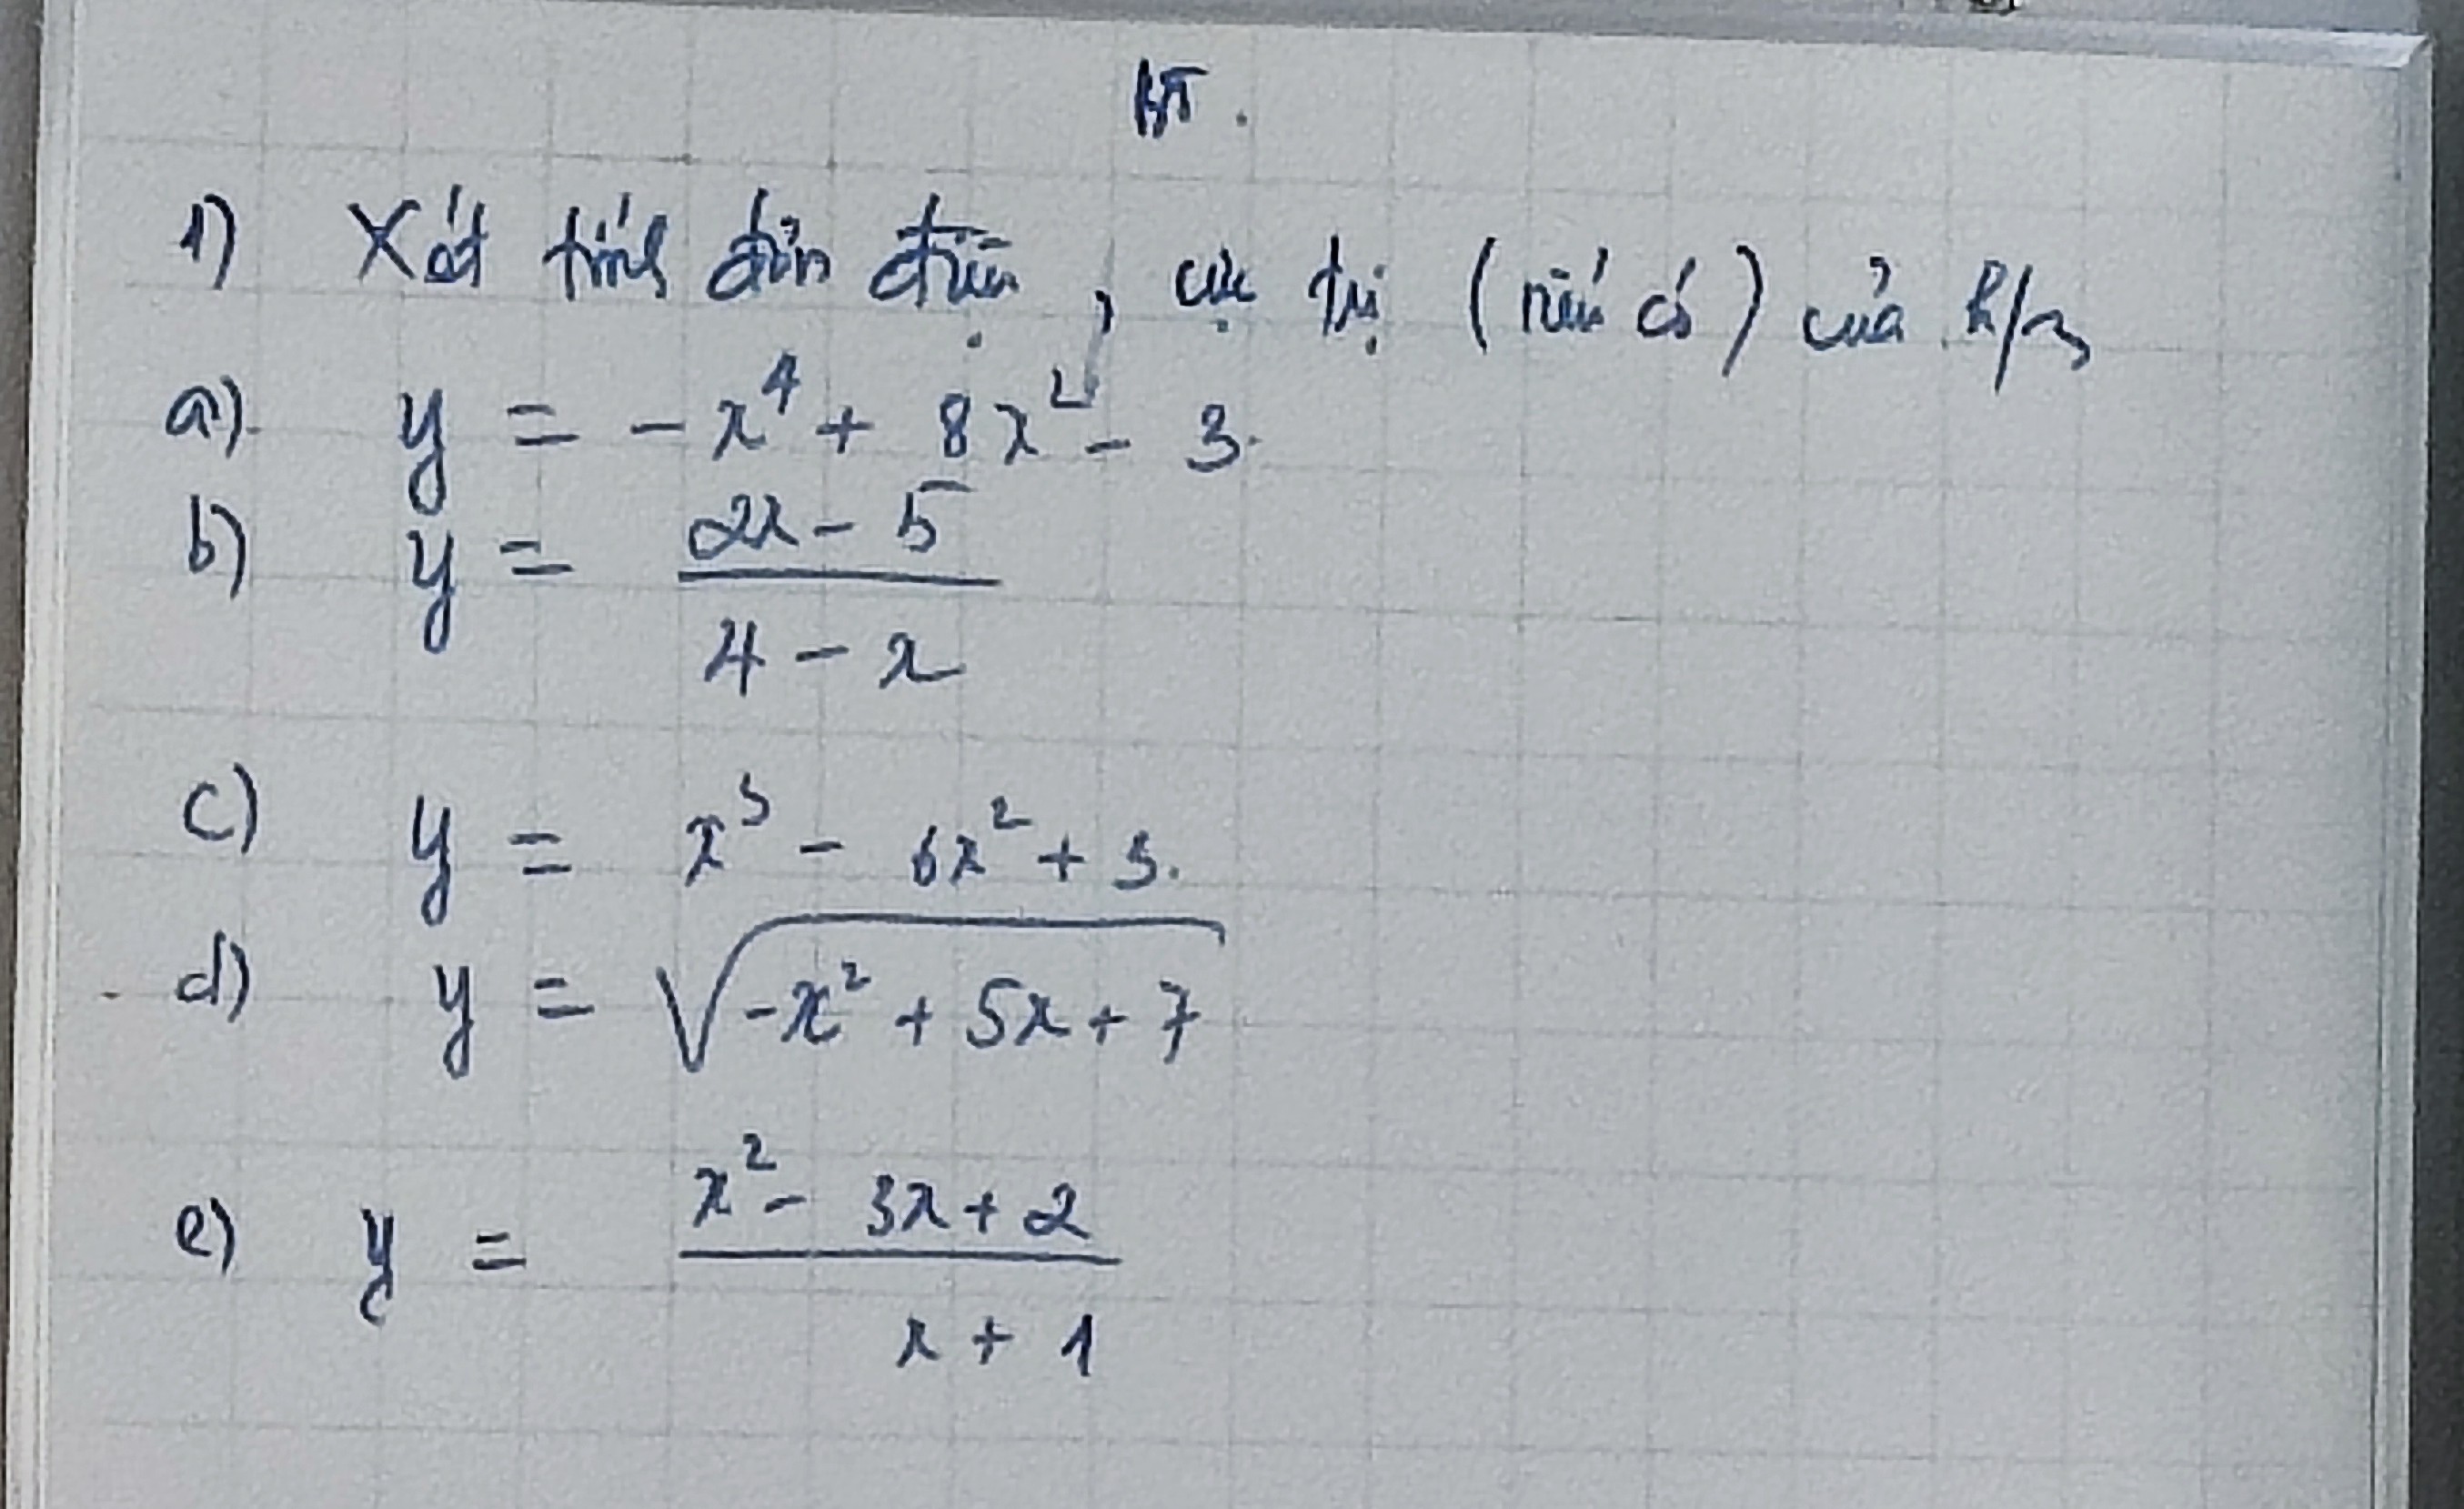 BT.
1) Xét tính đơn điệu, cực trị (nếu có) của h/s
a) y = -x⁴ + 8x² - 3.
b) y = (2x - 5)/(4 - x)
c) y = x³ - 6x² + 3.
d) y = √(-x² + 5x + 7)
e) y = (x² - 3x + 2)/(x + 1)